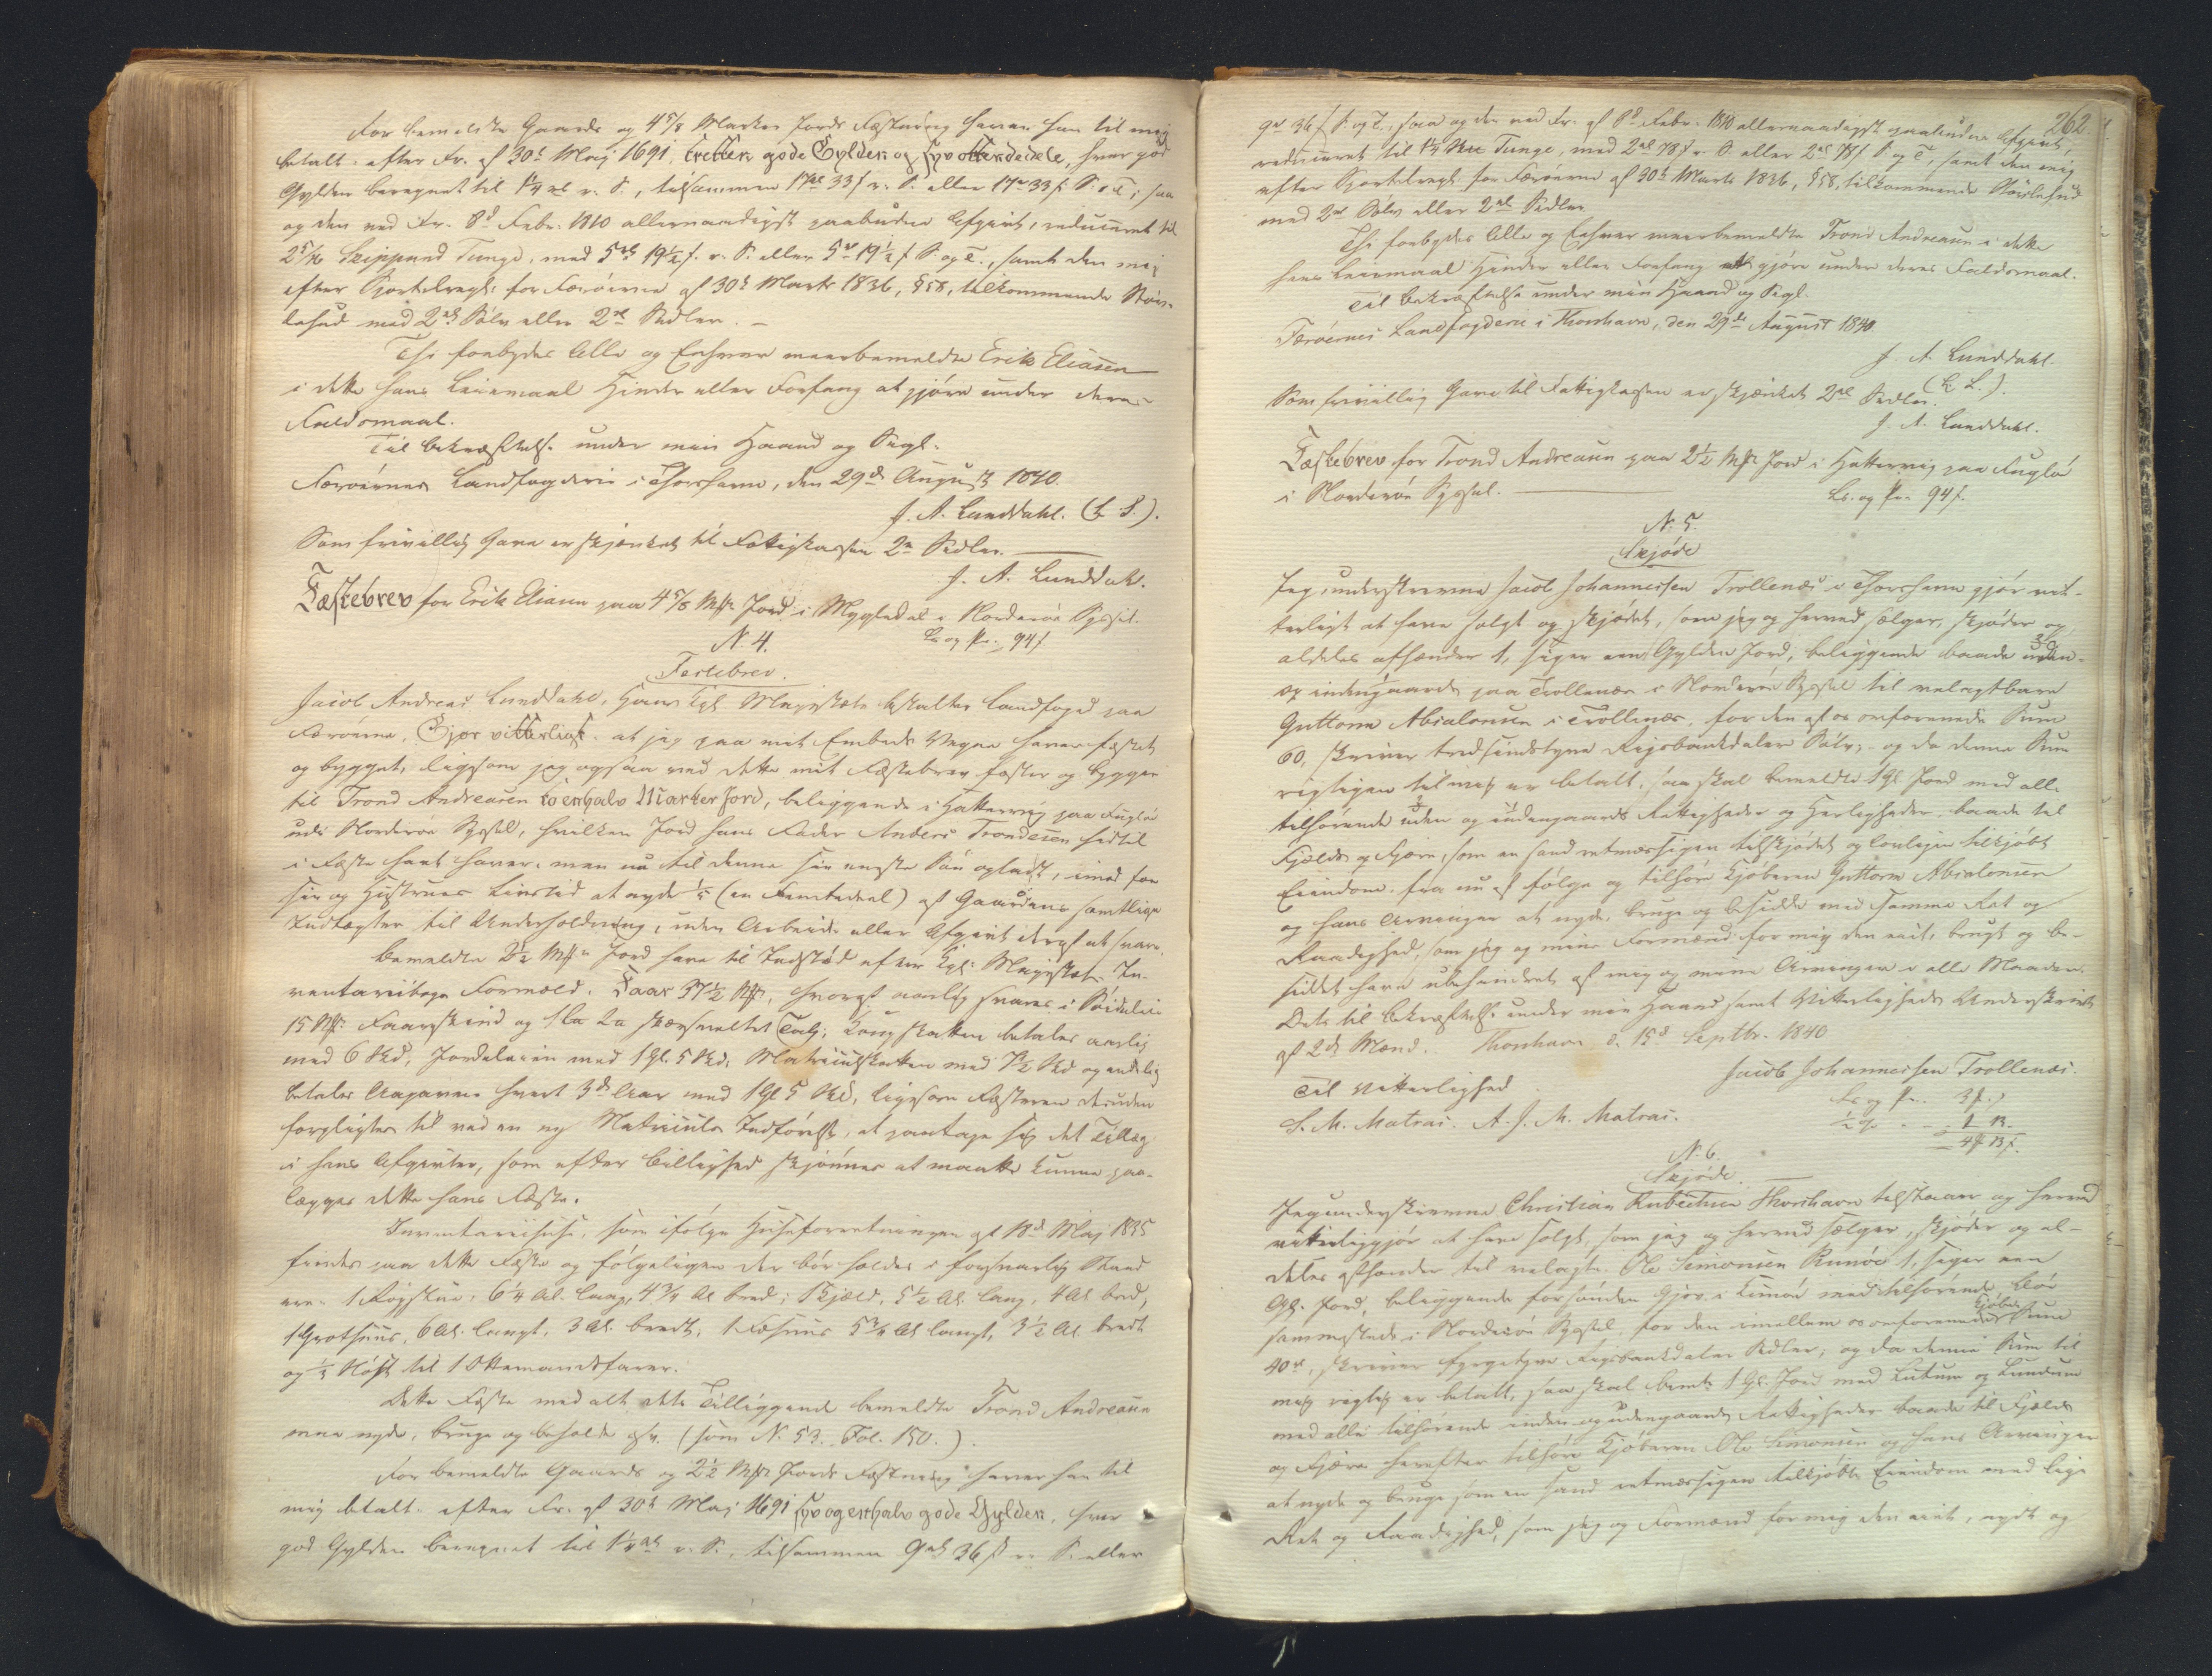 For bemeldte Gaards og 4 5/8 Marker Jords Fæstning haver han til mig
betalt efter Fr. af 30te Maj 1691, tretten gode Gylden og syv ottendedele, hver god
Gylden beregnet til 1 1/4 rd r. S., tilsammen 17rd 33 s r. S. eller 17rd 33 s S. og T., saa
og den ved Fr. 8de Febr. 1810 allernaadigst paabudne Afgivt, reduceret til
2 5/16 Skippund Tunge, med 5rd 19 1/2 s. r. S. eller 5rd 19 1/2 s S. og T., samt den mig
efter Sportelregl. for Færöerne af 30te Marts 1836, § 58, tilkommende Stöv-
lehud med 2rd Sölv eller 2rd Sedler. –
Thi forbydes Alle og Enhver meerbemeldte Erik Eliasen
i dette hans Leiemaal Hinder eller Forfang at gjöre under deres
Faldsmaal.
Til Bekræftelse under min Haand og Segl.
Færöernes Landfogderie i Thorshavn, den 29de August 1840.
J. A. Lunddahl. (L. S.).
Som frivillig Gave er skjænket til Fattigkassen 2rd Sedler.
J. A. Lunddahl.
Fæstebrev for Erik Eliasen paa 4 5/8 Mkr Jord i Mygledal i Norderöe Syssel.
Ls. og Pr. 94 s
N. 4.
Festebrev.
Jacob Andreas Lunddahl, Hans Kgl. Majestæts bestalter Landfoged paa
Færöerne, Gjör vitterligt: at jeg paa mit Embeds Vegne haver fæstet
og bygget, ligesom jeg ogsaa ved dette mit Fæstebrev fæster og bygger
til Trond Andreasen toenhalv Marker Jord, beliggende i Hattervig paa Fuglö
udi Norderöe Syssel, hvilken Jord hans Fader Anders Trondesen hidtil
i Fæste havt haver, men nu til denne sin ungste Sön opladt, imod for
sin og Hustrues Livstid at nyde 1/5 (en Femtedeel) af Gaardens samtlige
Indtægter til Underholdning, uden Arbeide eller Afgivt deraf at svare.
Bemeldte 2 1/2 Mkr Jord have til Indstöd efter Kgl. Majestæts In-
ventariibogs Formeld: Faar 37 1/2 Stk, hvoraf aarlig svares i Söideleie
15 Stk: Faareskind og 1 La 2a skærsmeltet Talg; Kongskatten betales aarlig
med 6 Skd; Jordeleien med 1 Gl. 5 Skd; Matriculskatten med 7 1/2 Skd og endelig
betales Aagaven hvert 3de Aar med 1 Gl 5 Skd, ligesom Fæsteren desuden
forpligtes til ved en ny Matriculs Indförelse, at paatage sig det Tillæg
i hans Afgivter, som efter Billighed skjönnes at maatte kunne paa-
lægges dette hans Fæste.
Inventariihuse, som ifölge Huseforretningen af 18de Maj 1835
findes paa dette Fæste og fölgeligen der bör holdes i forsvarlig Stand
ere: 1 Rögstue, 6 1/4 Al. lang, 4 3/4 Al bred; Skjeld, 5 1/2 Al. lang, 4 Al bred,
1 Grothuus, 6 Al. langt, 3 Al. bredt, 1 Fæhuus 5 3/4 Al langt, 3 1/2 Al. bredt
og 1/3 Nöst til 1 Ottemandsfarer.
Dette Fæste med alt dets Tilliggende bemeldte Trond Andreasen
maa nyde, bruge og beholde osv. (som N. 53. Fol. 150.).
For bemeldte Gaards og 2 1/2 Mkr Jords Fæstning haver han til
mig betalt efter Fr. af 30te Maj 1691 syv og enhalv gode Gylden, hver
god Gylden beregnet til 1 1/4 rd r. S., tilsammen 9rd 36 s r. S. eller
262.
9rd 36 s S. og T., saa og den ved Fr. af 8de Febr. 1810 allernaadigst paabudne Afgivt,
reduceret til 1 1/4 Tunge, med 2rd 78 s r. S. eller 2rd 78 s S. og T., samt den mig
efter Sportelregl. for Færöerne af 30te Marts 1836, § 58, tilkommende Stövlehud
med 2rd Sölv eller 2rd Sedler.
Thi forbydes Alle og Enhver meerbemeldte Trond Andreasen i dette
hans Leiemaal Hinder eller Forfang at gjöre under deres Faldsmaal.
Til Bekræftelse under min Haand og Segl.
Færöernes Landfogderie i Thorshavn, den 29de August 1840.
J. A. Lunddahl.
(L. S.).
Som frivillig Gave til Fattigkassen er skjænket 2rd Sedler.
J. A. Lunddahl.
Fæstebrev for Trond Andreasen paa 2 1/2 Mkr Jord i Hattervig paa Fuglö
i Norderöe Syssel.
Ls. og Pr. 94 s.
N. 5.
Skjöde
Jeg underskrevne Jacob Johannessen Trollenæs i Thorshavn gjör vit-
terligt at have solgt og skjödet, som jeg og herved sælger, skjöder og
aldeles afhænder 1, siger een Gylden Jord, beliggende baade uden-
og indengaards paa Trollenæs i Norderöe Syssel til velagtbare
Guttorm Absalonsen i Trollenæs, for den af os omforenede Sum
60, skriver tredsindstyve Rigsbankdaler Sölv; og da denne Sum
rigtigen til mig er betalt, saa skal bemeldte 1 Gl. Jord med alle
tilhörende uden og indengaards Rettigheder og Herligheder, baade til
Fjelds og Fjære, som en sand retmæssigen tilskjödet og lovligen tilkjöbt
Eiendom fra nu af fölge og tilhöre Kjöberen Guttorm Absalonsen
og hans Arvinger at nyde, bruge og besidde med samme Ret og
Raadighed, som jeg og mine Formænd for mig den eiet, brugt og be-
siddet have ubehindret af mig og mine Arvinger i alle Maader.
Dets til Bekræftelse under min Haand samt Vitterligheds Underskrivt
af 2de Mænd. Thorshavn d. 15de Septbr. 1840
Jacob Johannessen Trollenæs.
Til Vitterlighed
S. M. Matras. A. J. M. Matras.
Ls og Pr. 3 s.,
1/2 % - - 1 R.
N. 6.
Skjöde.
Jeg underskrevne Christian Rubeksen Thorshavn tilstaaer og herved
vitterliggjör at have solgt, som jeg og herved sælger, skjöder og al-
deles afhænder til velagte Ole Simonsen Kunöe 1, siger een
Gl. Jord, beliggende forsönden Gjov i Kunöe med tilhörende Bör
sammesteds i Norderöe Syssel, for den imellem os omforenede Kjöbe Sum
40rd, skriver fyrgetyve Rigsbankdaler Sedler; og da denne Sum til
mig rigtig er betalt, saa skal bemte 1 Gl. Jord med Lutum og Lundum
med alle tilhörende inden- og udengaards Rettigheder baade til Fjelds
og Fjære herefter tilhöre Kjöberen Ole Simonsen og hans Arvinger
at nyde og bruge som en sand retmæssigen tilkjöbt Eiendom med lige
Ret og Raadighed, som jeg og Formænd for mig den eiet, nydt og